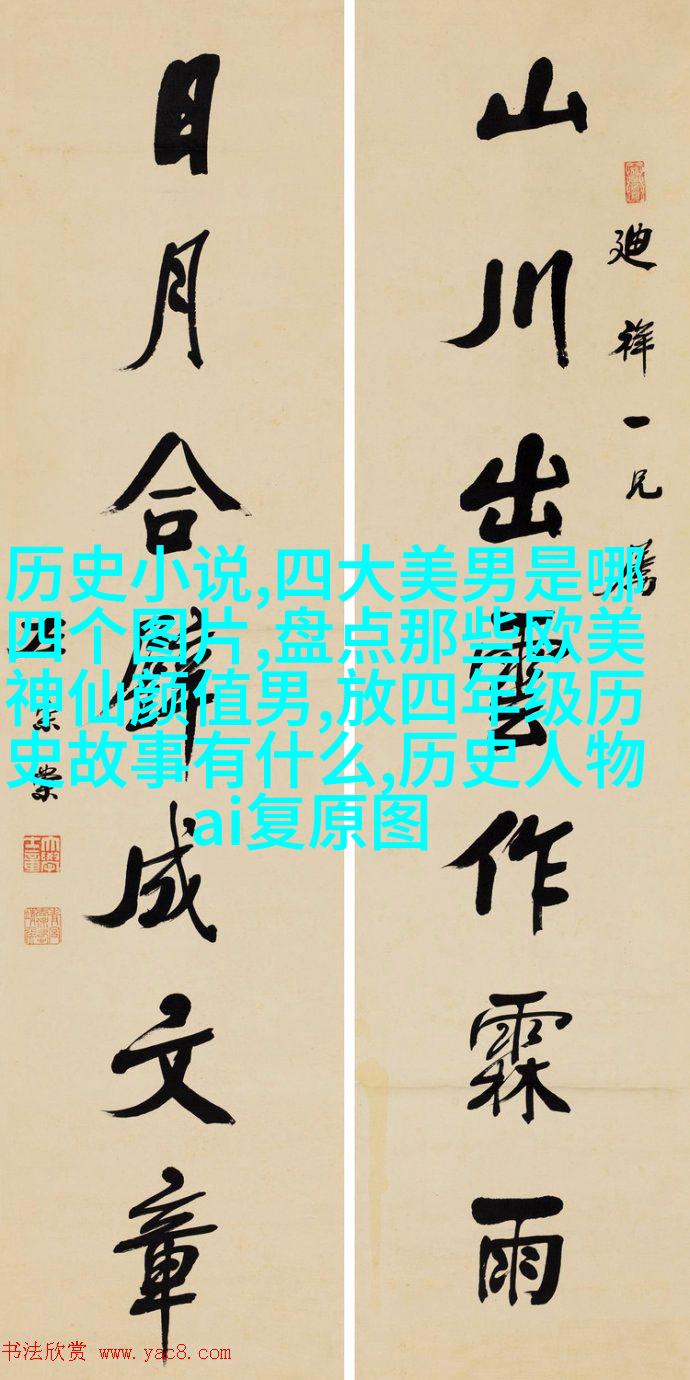 廸祥一兄屬
山川出雲作霖雨
日月合璧成文章
宗棠
历史小说,四大美男是哪
四个图片,盘点那些欧美
神仙颜值男,放四年级历
史故事有什么,历史人物
ai复原图
书法欣赏 www.yac8.com